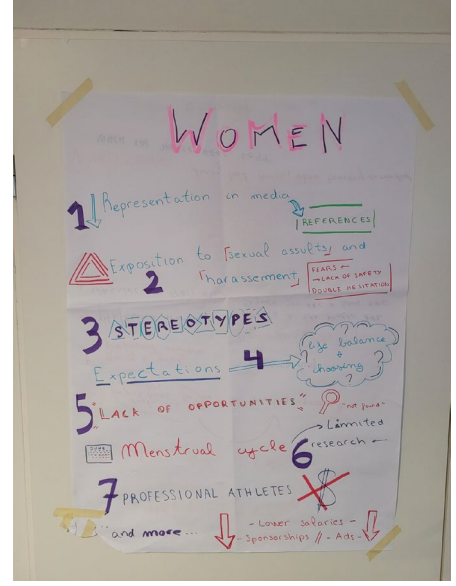 WOMEN
1 Representation in media
REFERENCES
2 Exposition to "sexual assults" and
"harassement"
FEARS
LACK OF SAFETY
DOUBLE HESITATION
3 STEREOTYPES
Expectations 4
balance
+
choosing
? ? ? ?
5 "LACK OF OPPORTUNITIES"
"not found"
Menstrual cycle 6
Limited
research
7 PROFESSIONAL ATHLETES $
and more...
- Lower salaries -
- Sponsorships // - Ads -